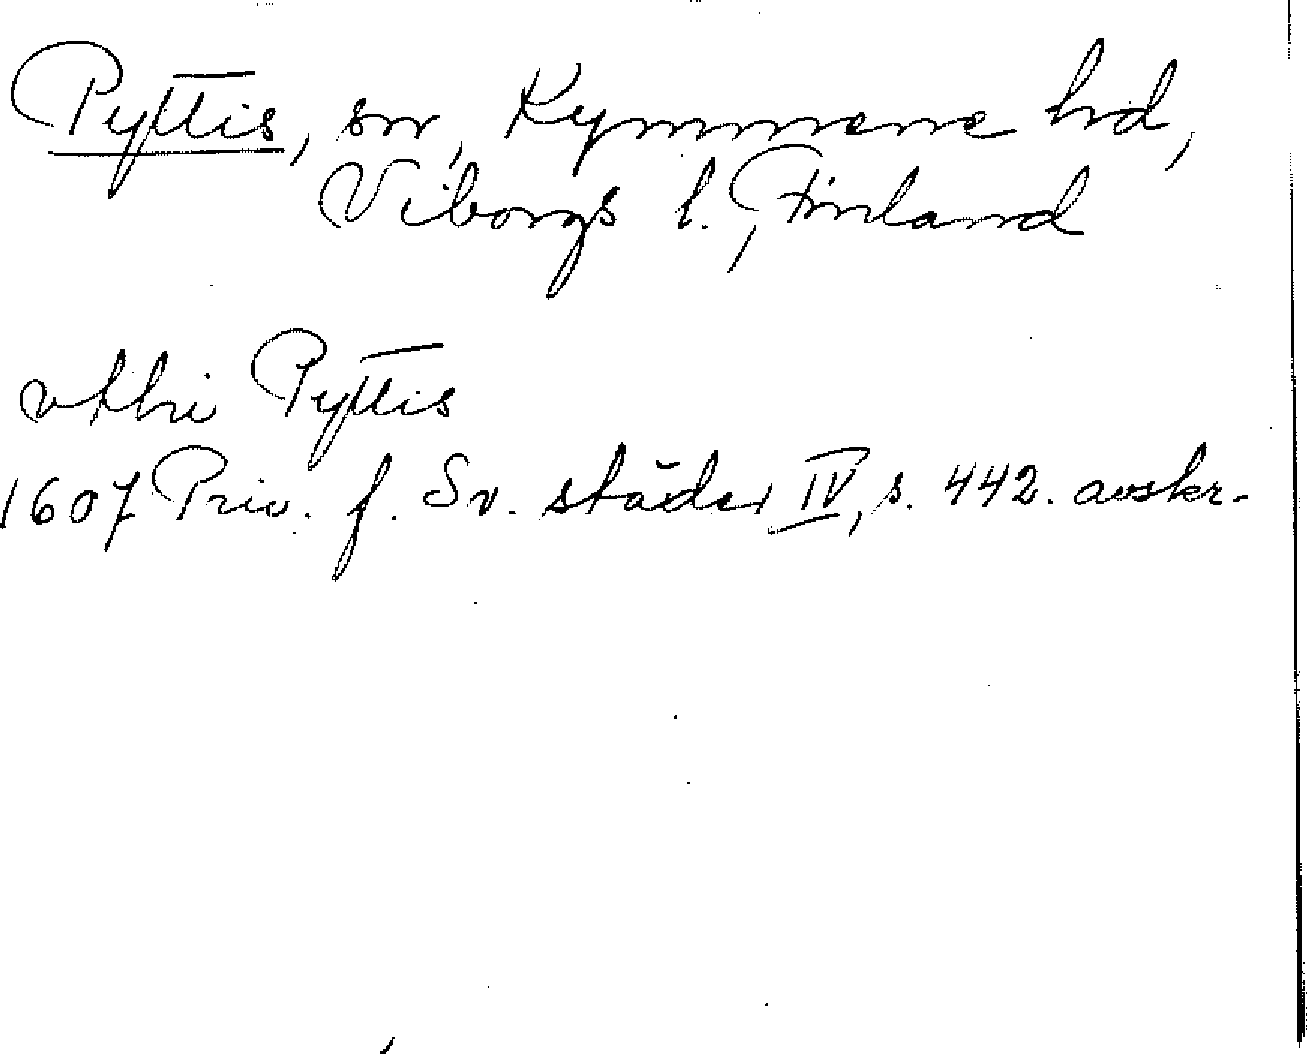 Pyttis, sn, Kymmene hd,
Viborgs l., Finland
vthi Pyttis
1607 Priv. f. Sv. städer IV, s. 442. avskr.